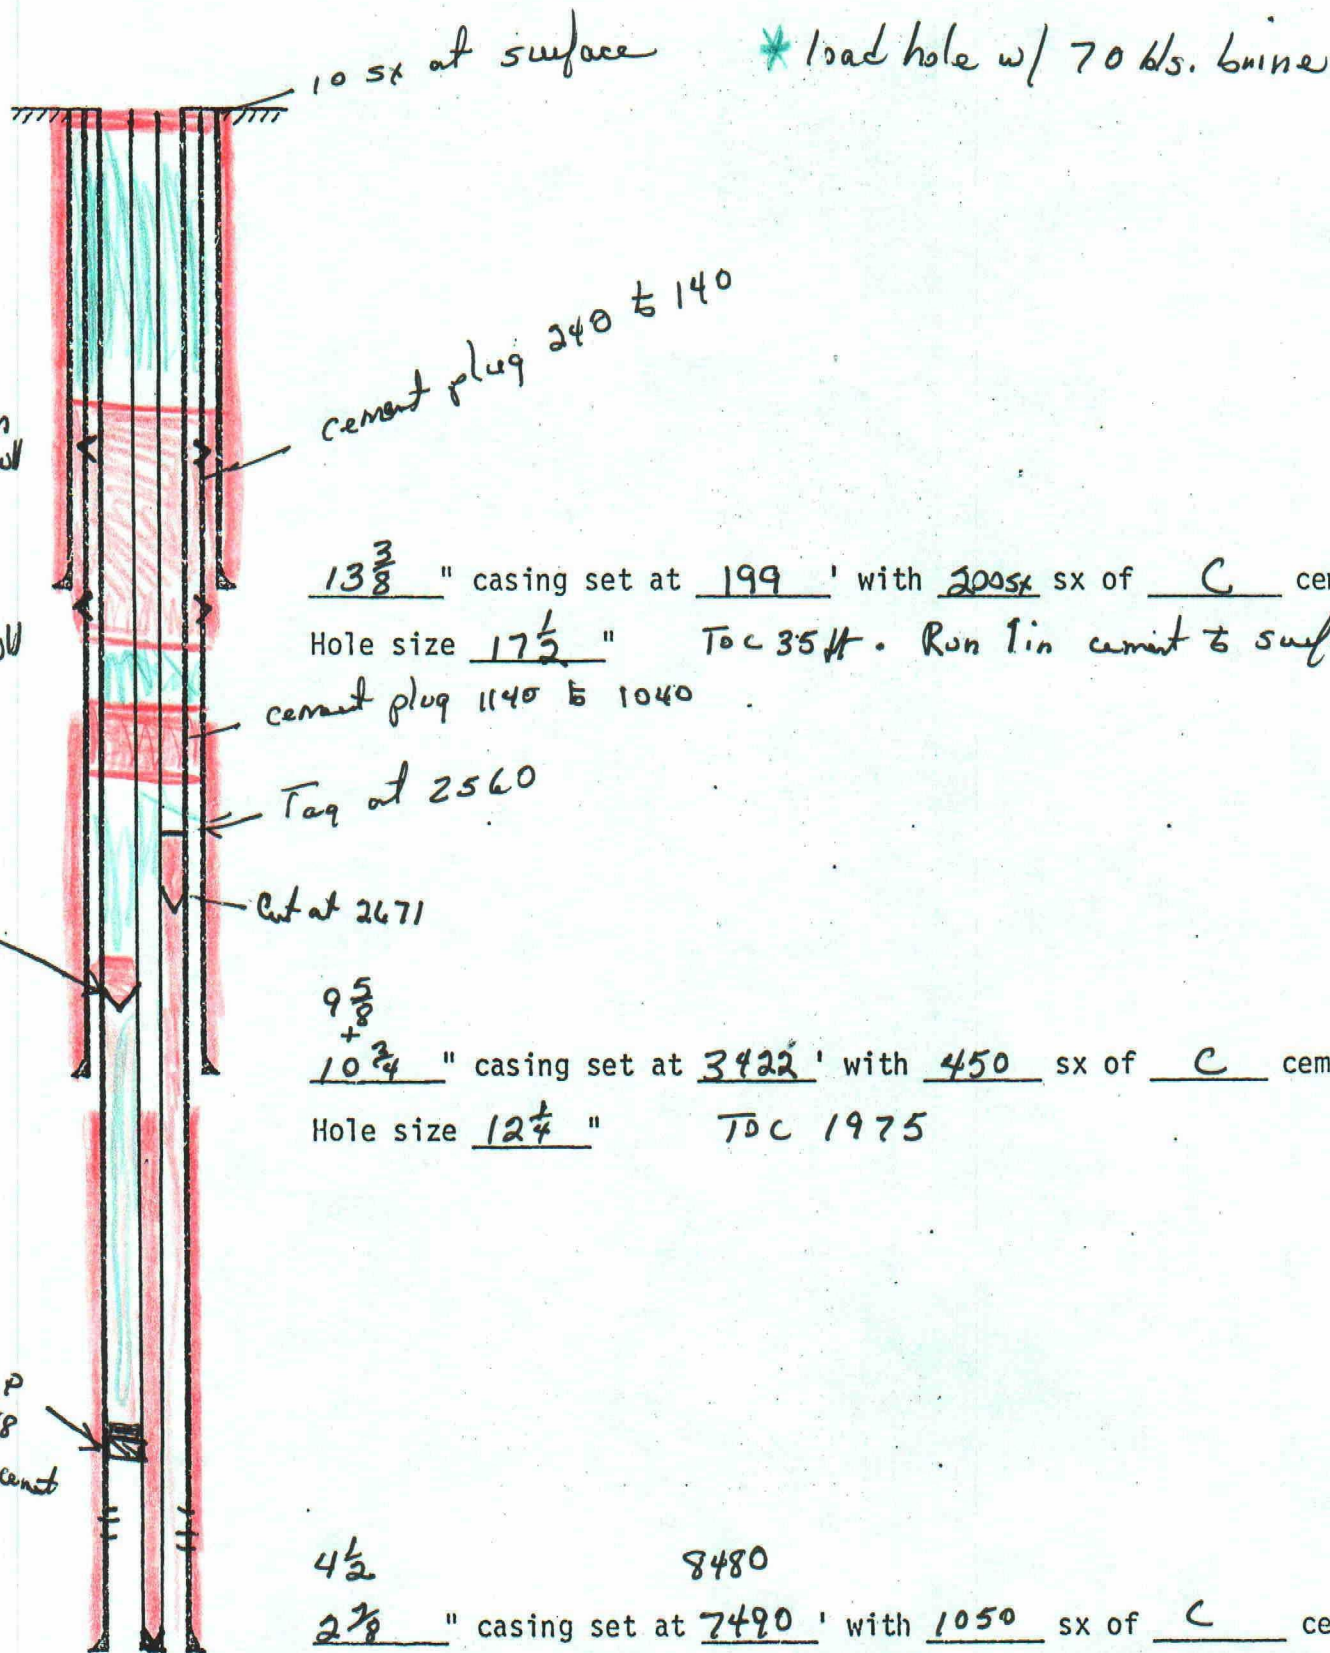 10 sx at surface
* load hole w/ 70 bls. brine
cement plug 240 to 140
13 3/8 " casing set at 199 ' with 200sx sx of C
Hole size 17 1/2 " TOC 35 ft. Run 1in cement to surf
cement plug 1140 to 1040
Tag at 2560
Cut at 2671
9 5/8
+
10 3/4 " casing set at 3422 ' with 450 sx of C cem
Hole size 12 1/4 " TOC 1975
P
8
cement
4 1/2 8480
2 7/8 " casing set at 7490 ' with 1050 sx of C